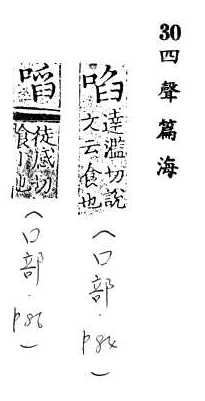 30四聲篇海
啗 達濫切說文云食也
(口部.p84)
㗖 徒感切食也
(口部.p86)